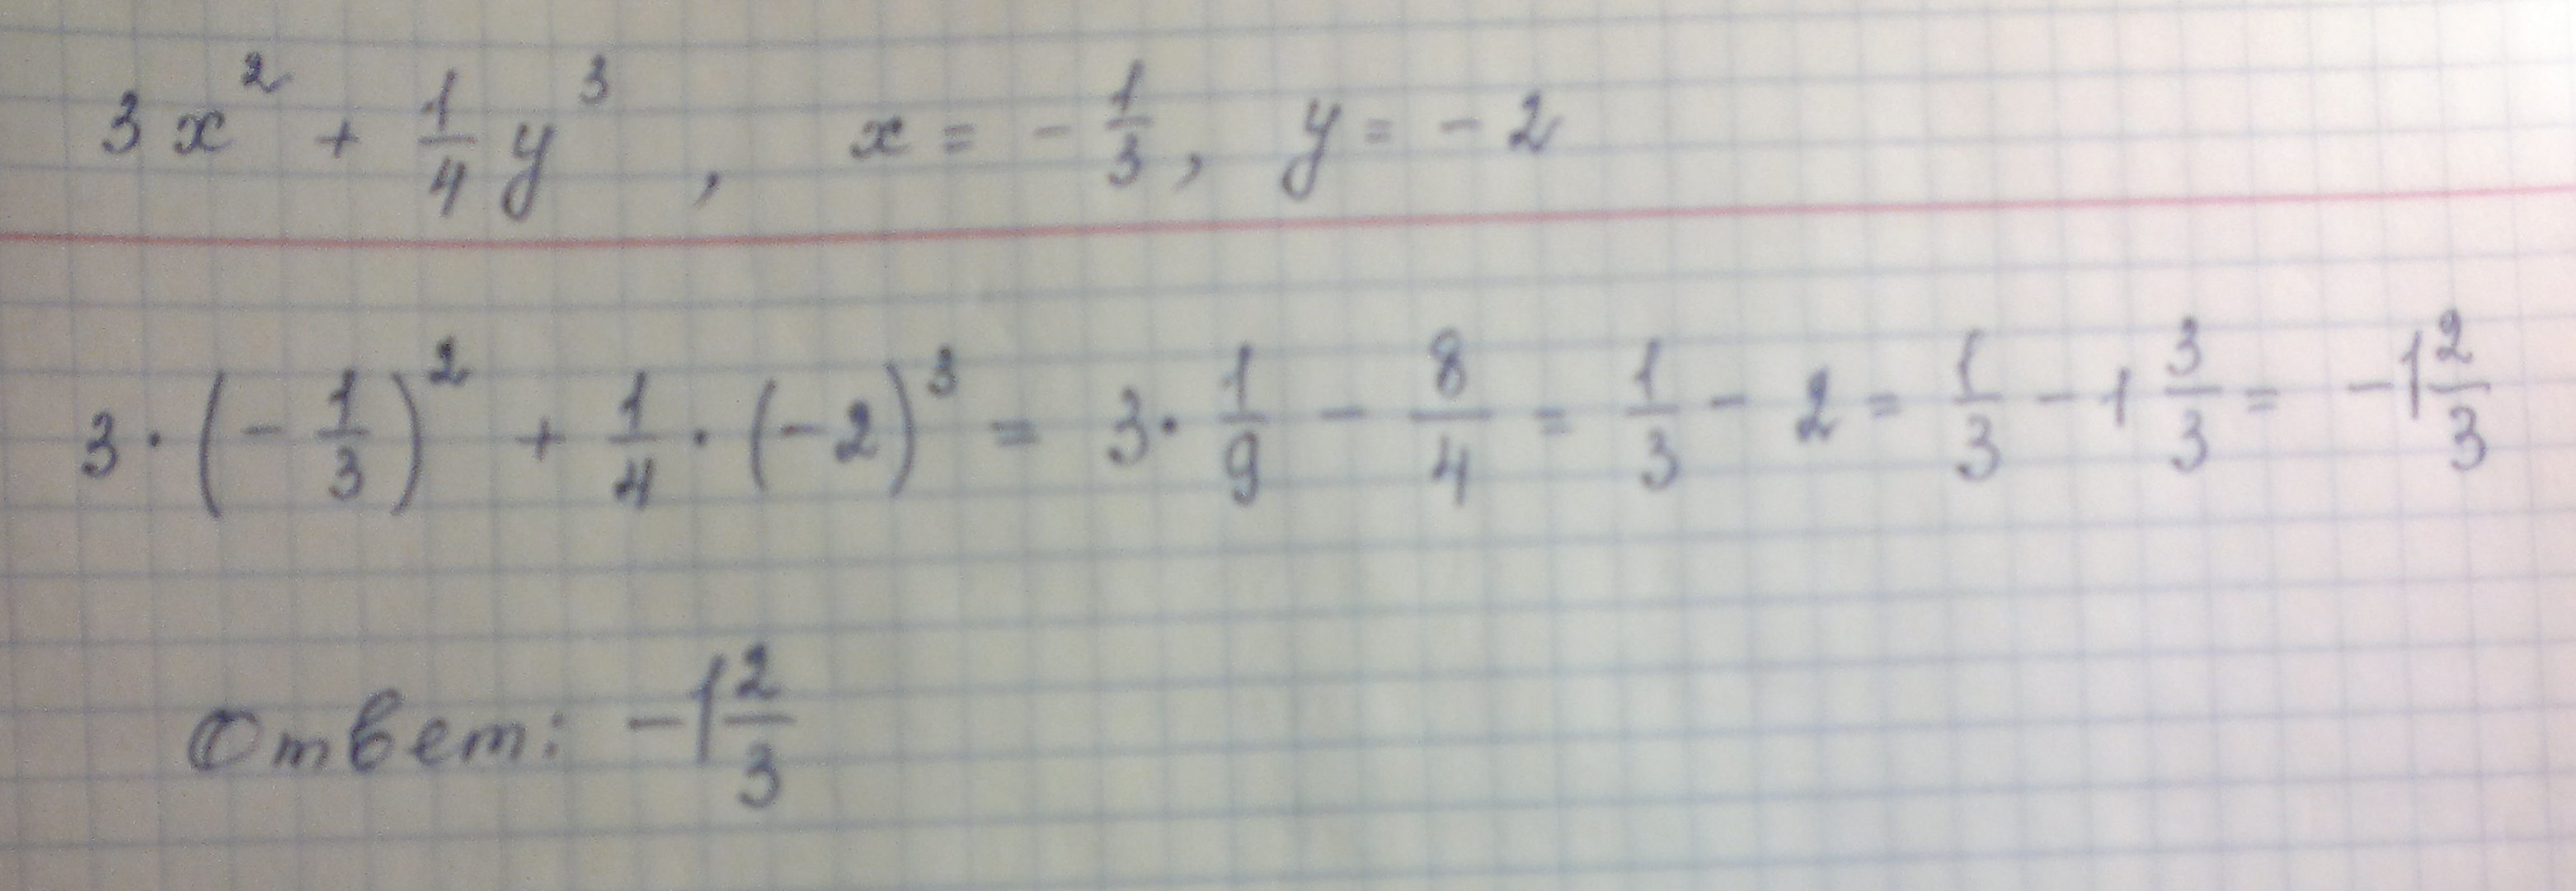 3x² + 1/4 y³, x = -1/3, y = -2
3·(-1/3)² + 1/4·(-2)³ = 3·1/9 - 8/4 = 1/3 - 2 = 1/3 - 1 3/3 = -1 2/3
Ответ: -1 2/3